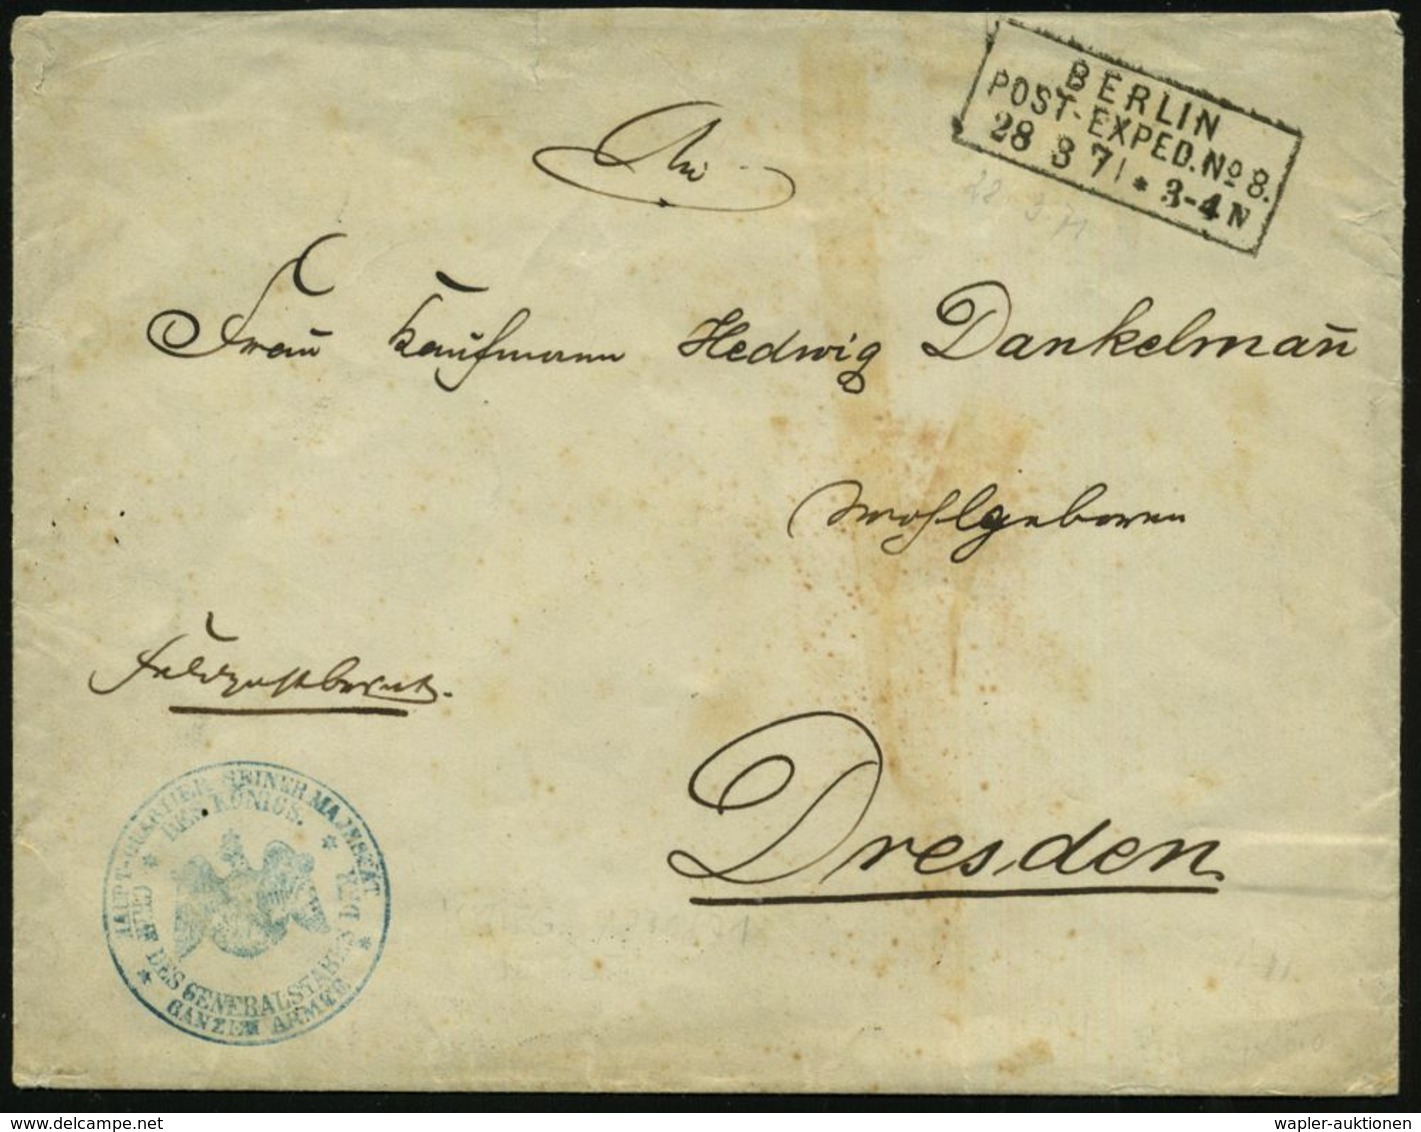 BERLIN
POST-EXPED. No 8.
28 3 71 * 3-4 N
28. 3. 71
An
Frau Kaufmann Hedwig Dankelmañ
Wohlgeboren
Feldpostbrief.
Dresden.
HAUPT-QUARTIER SEINER MAJESTÄT
* DES KÖNIGS. *
CHEF DES GENERALSTABES DER
* GANZEN ARMEE *
wapler-auktionen